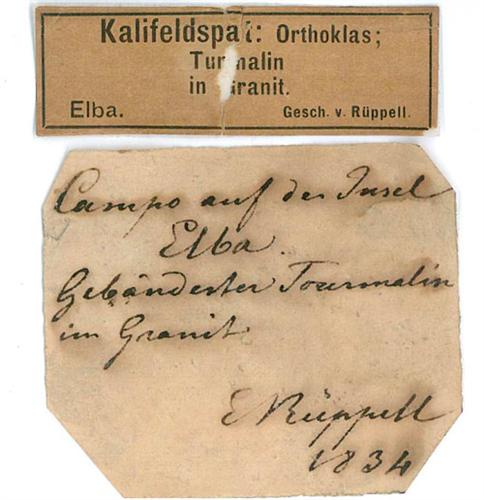 Kalifeldspat: Orthoklas;
Turmalin
in Granit.
Elba. Gesch. v. Rüppell.
Campo auf der Insel
Elba.
Gebänderter Tourmalin
im Granit.
E Rüppell
1834